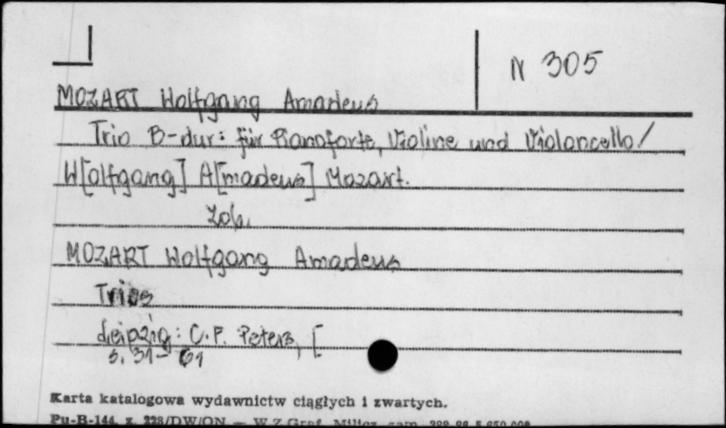 N 305
MOZART Wolfgang Amadeus
Trio B-dur: für Pianoforte, Violine und Violoncello /
W[olfgang] A[madeus] Mozart.
Zob.
MOZART Wolfgang Amadeus
Trios
Leipzig: C.F. Peters, [
s. 31-61
Karta katalogowa wydawnictw ciągłych i zwartych.
Pu-B-144, z. 228/DW/ON — W.Z.Graf. Milicz, zam.